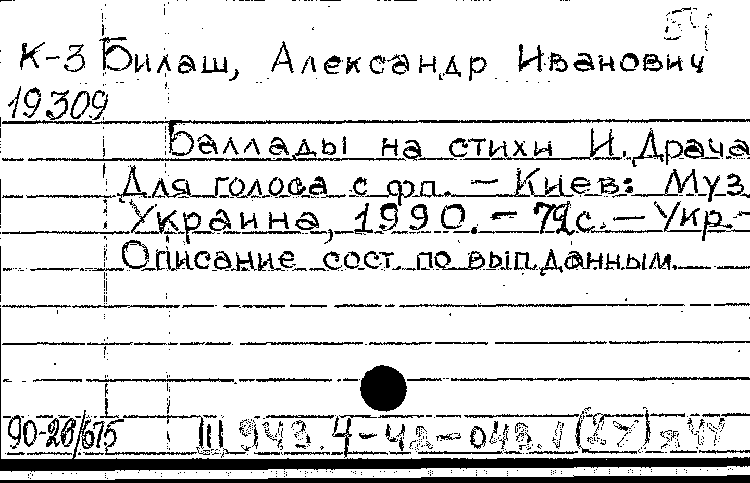 54
К-3 Билаш, Александр Иванович
19309
Баллады на стихи И. Драча
Для голоса с фп. – Киев: Муз
Украина, 1990. – 79с. – Укр.-
Описание сост. по вып. данным.
90-26/675 Щ 943.4-42-043.1(2У)я44